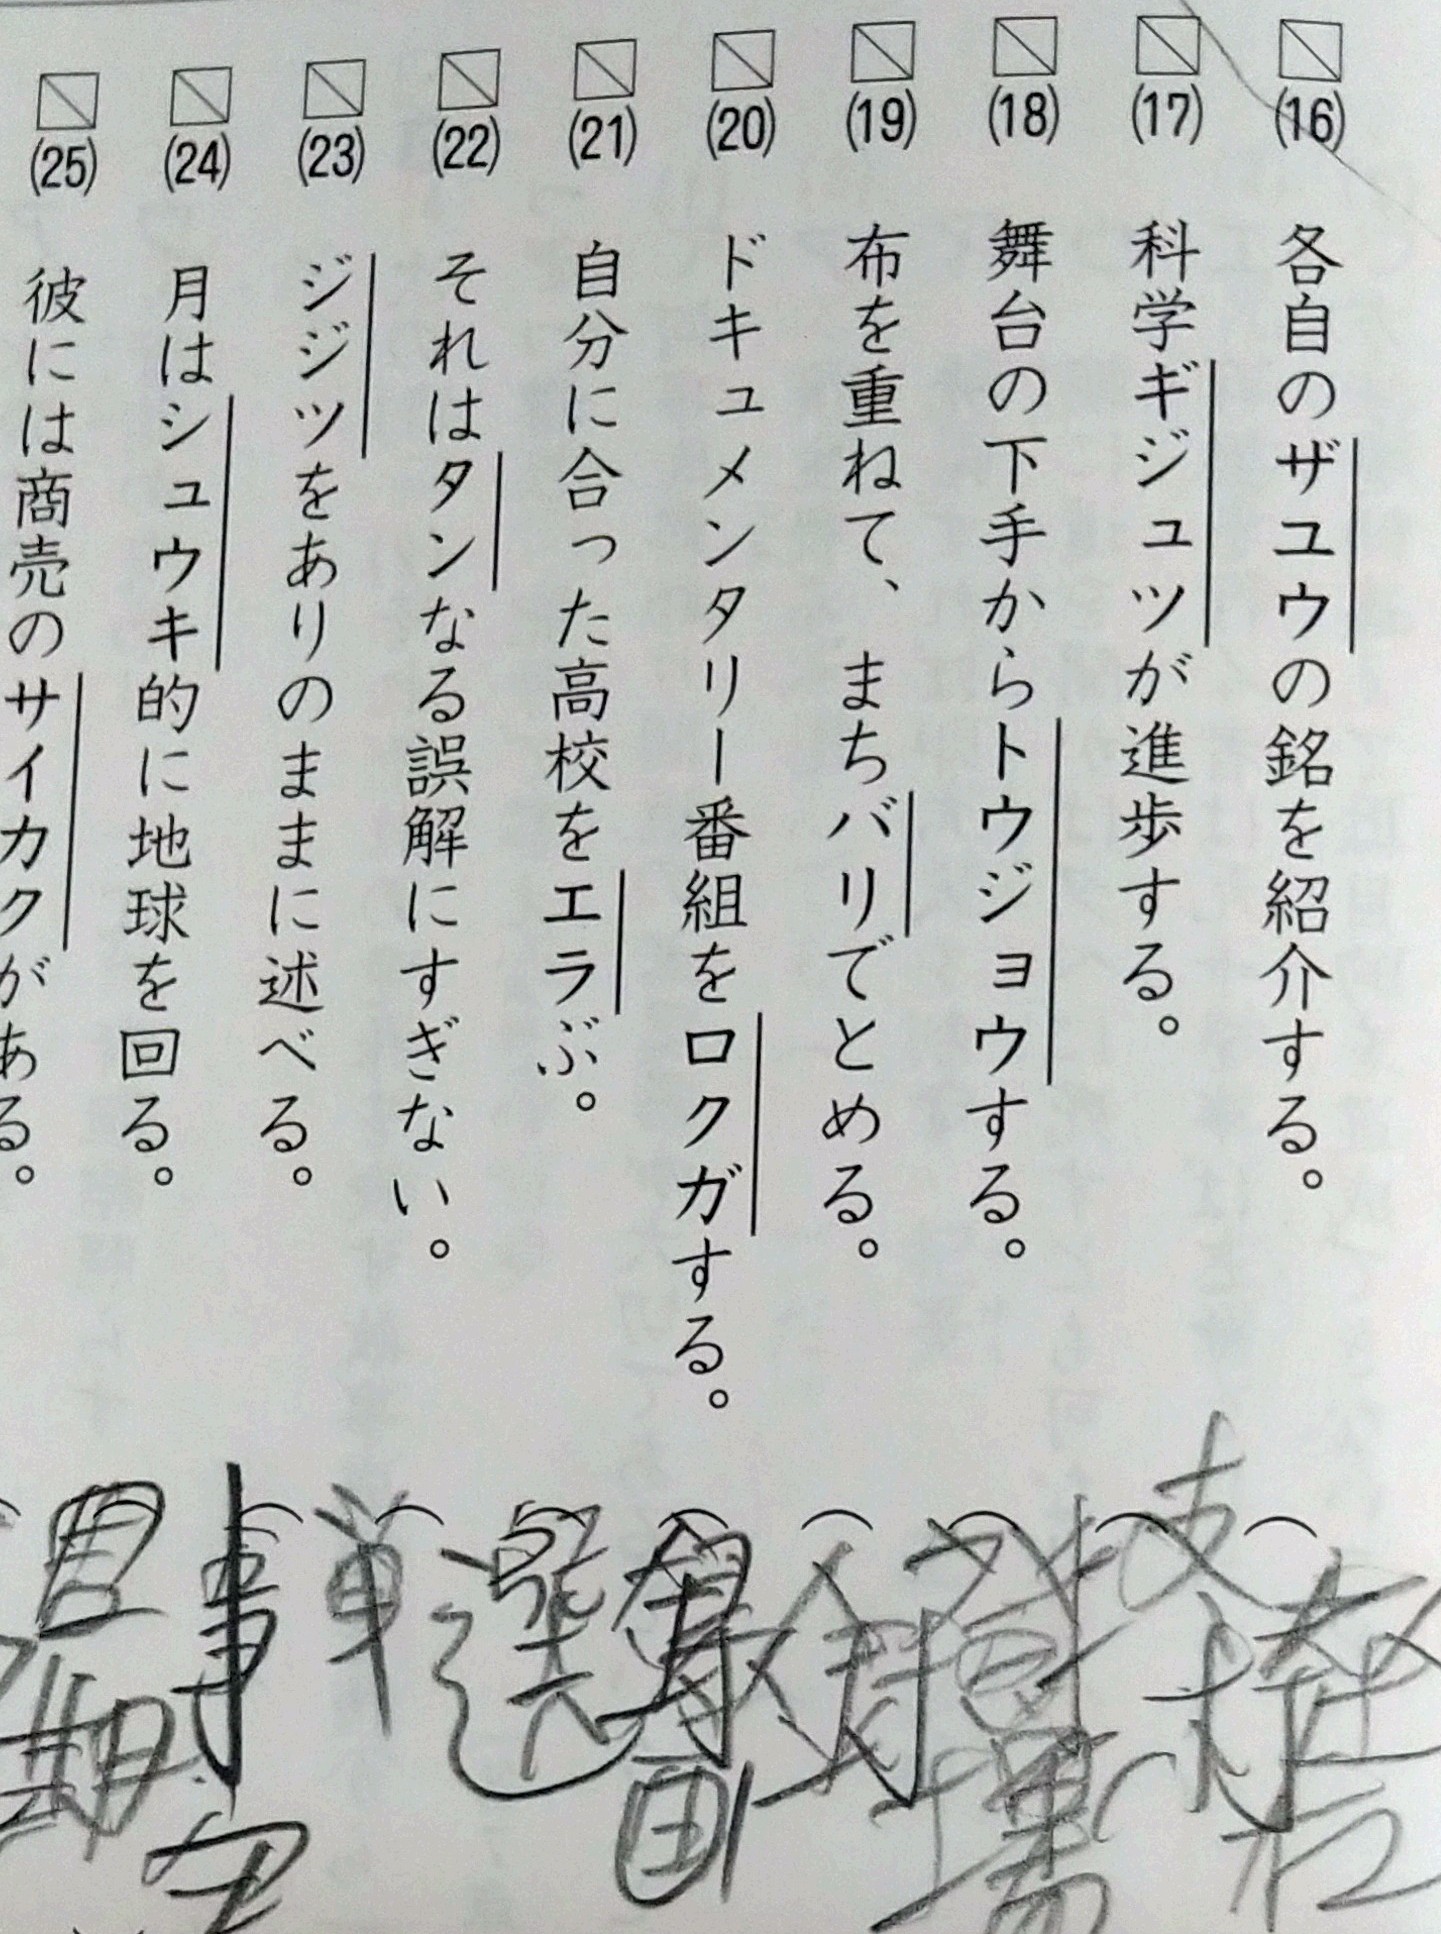 (16) 各自のザユウの銘を紹介する。
(17) 科学ギジュツが進歩する。
(18) 舞台の下手からトウジョウする。
(19) 布を重ねて、まちバリでとめる。
(20) ドキュメンタリー番組をロクガする。
(21) 自分に合った高校をエラぶ。
(22) それはタンなる誤解にすぎない。
(23) ジジツをありのままに述べる。
(24) 月はシュウキ的に地球を回る。
(25) 彼には商売のサイカクがある。
座右
技
登場
針
選
単
事実
周期